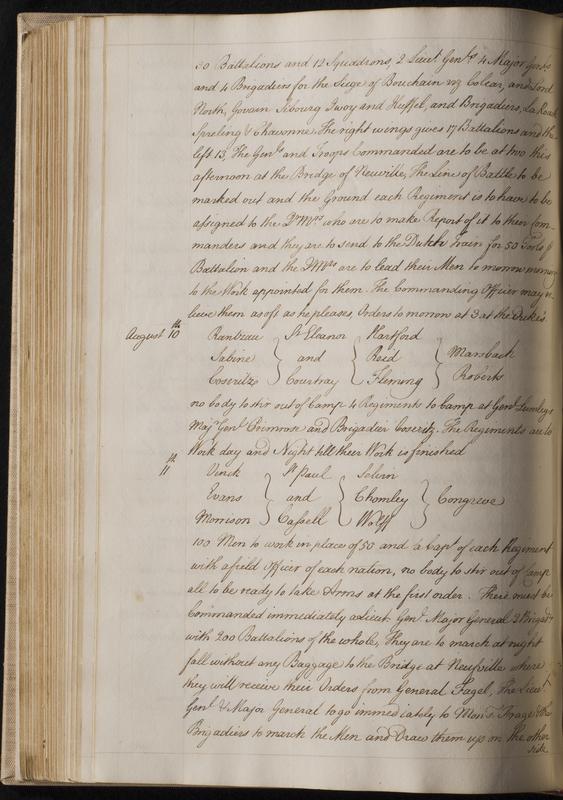 30 Battalions and 12 Squadrons, 2 Lieut. Genls. 4 Major Genls
and 4 Brigadiers for the Siege of Bouchain viz Colear, and Lord
North, Govain Sibourg Ivoy, and Huffel, and Brigadiers, La Rock
Spreling & Chavonne. The right wings gives 17 Battalions and the
left 13. The Genls. and Troops Commanded are to be at two this
afternoon at the Bridge of Neuville, The Line of Battle to be
marked out and the Ground each Regiment is to have to be
assigned to the Q Mrs. who are to make Report of it to their Com-
manders and they are to send to the Dutch Train for 50 Tools p
Battalion and the Q Mrs are to lead their Men to morrow morng
to the Work appointed for them. The Commanding Officer may re
lieve them as oft as he pleases, Orders to morrow at 3 at the Duke's
August 10th Rantzau St Eleanor Hartford
Sabine and Reid Mansbach
Coseritze Courtray Fleming Roberts
no body to stir out of Camp 4 Regiments to Camp at Genl. Lumleys
Majr Genl. Primrose and Brigadier Coseritz. The Regiments are to
Work day and Night till their Work is finished
11th Vinck St Paul Selvin
Evans and Chomley Congreve
Morrison Cassell Wolff
100 Men to work in place of 50 and a Capt. of each Regiment
with a field Officer of each nation, no body to stir out of Camp
all to be ready to take Arms at the first order. There must be
Commanded immediately a Lieut. Genl. Major General 2 Brigadrs
with 200 Battalions of the whole, They are to march at night
fall without any Baggage to the Bridge at Neufville where
they will receive their Orders from General Fagel, The Lieut
Genl. & Major General to go immediately to & the
Brigadiers to march the Men and Draw them up on the other
side